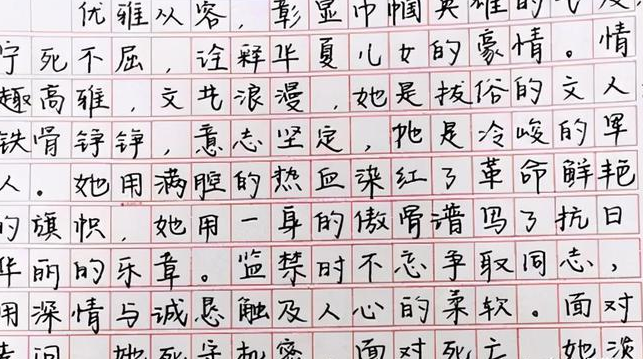 优雅从容，彰显巾帼英雄的气度
宁死不屈，诠释华夏儿女的豪情。情
趣高雅，文艺浪漫，她是拔俗的文人
铁骨铮铮，意志坚定，她是冷峻的军
人。她用满腔的热血染红了革命鲜艳
的旗帜，她用一身的傲骨谱写了抗日
华丽的乐章。监禁时不忘争取同志，
用深情与诚恳触及人心的柔软。面对
她死守机密，面对死亡，她淡